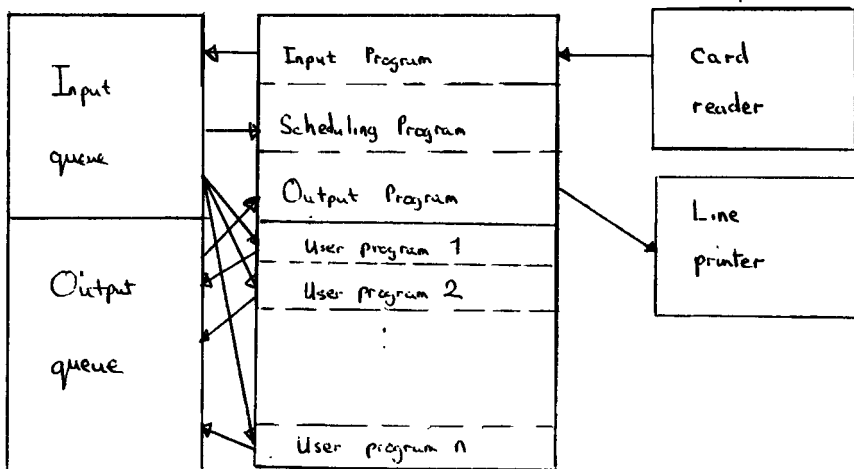 Input
queue
Output
queue
Input Program
Scheduling Program
Output Program
User program 1
User program 2
⋮
User program n
Card
reader
Line
printer